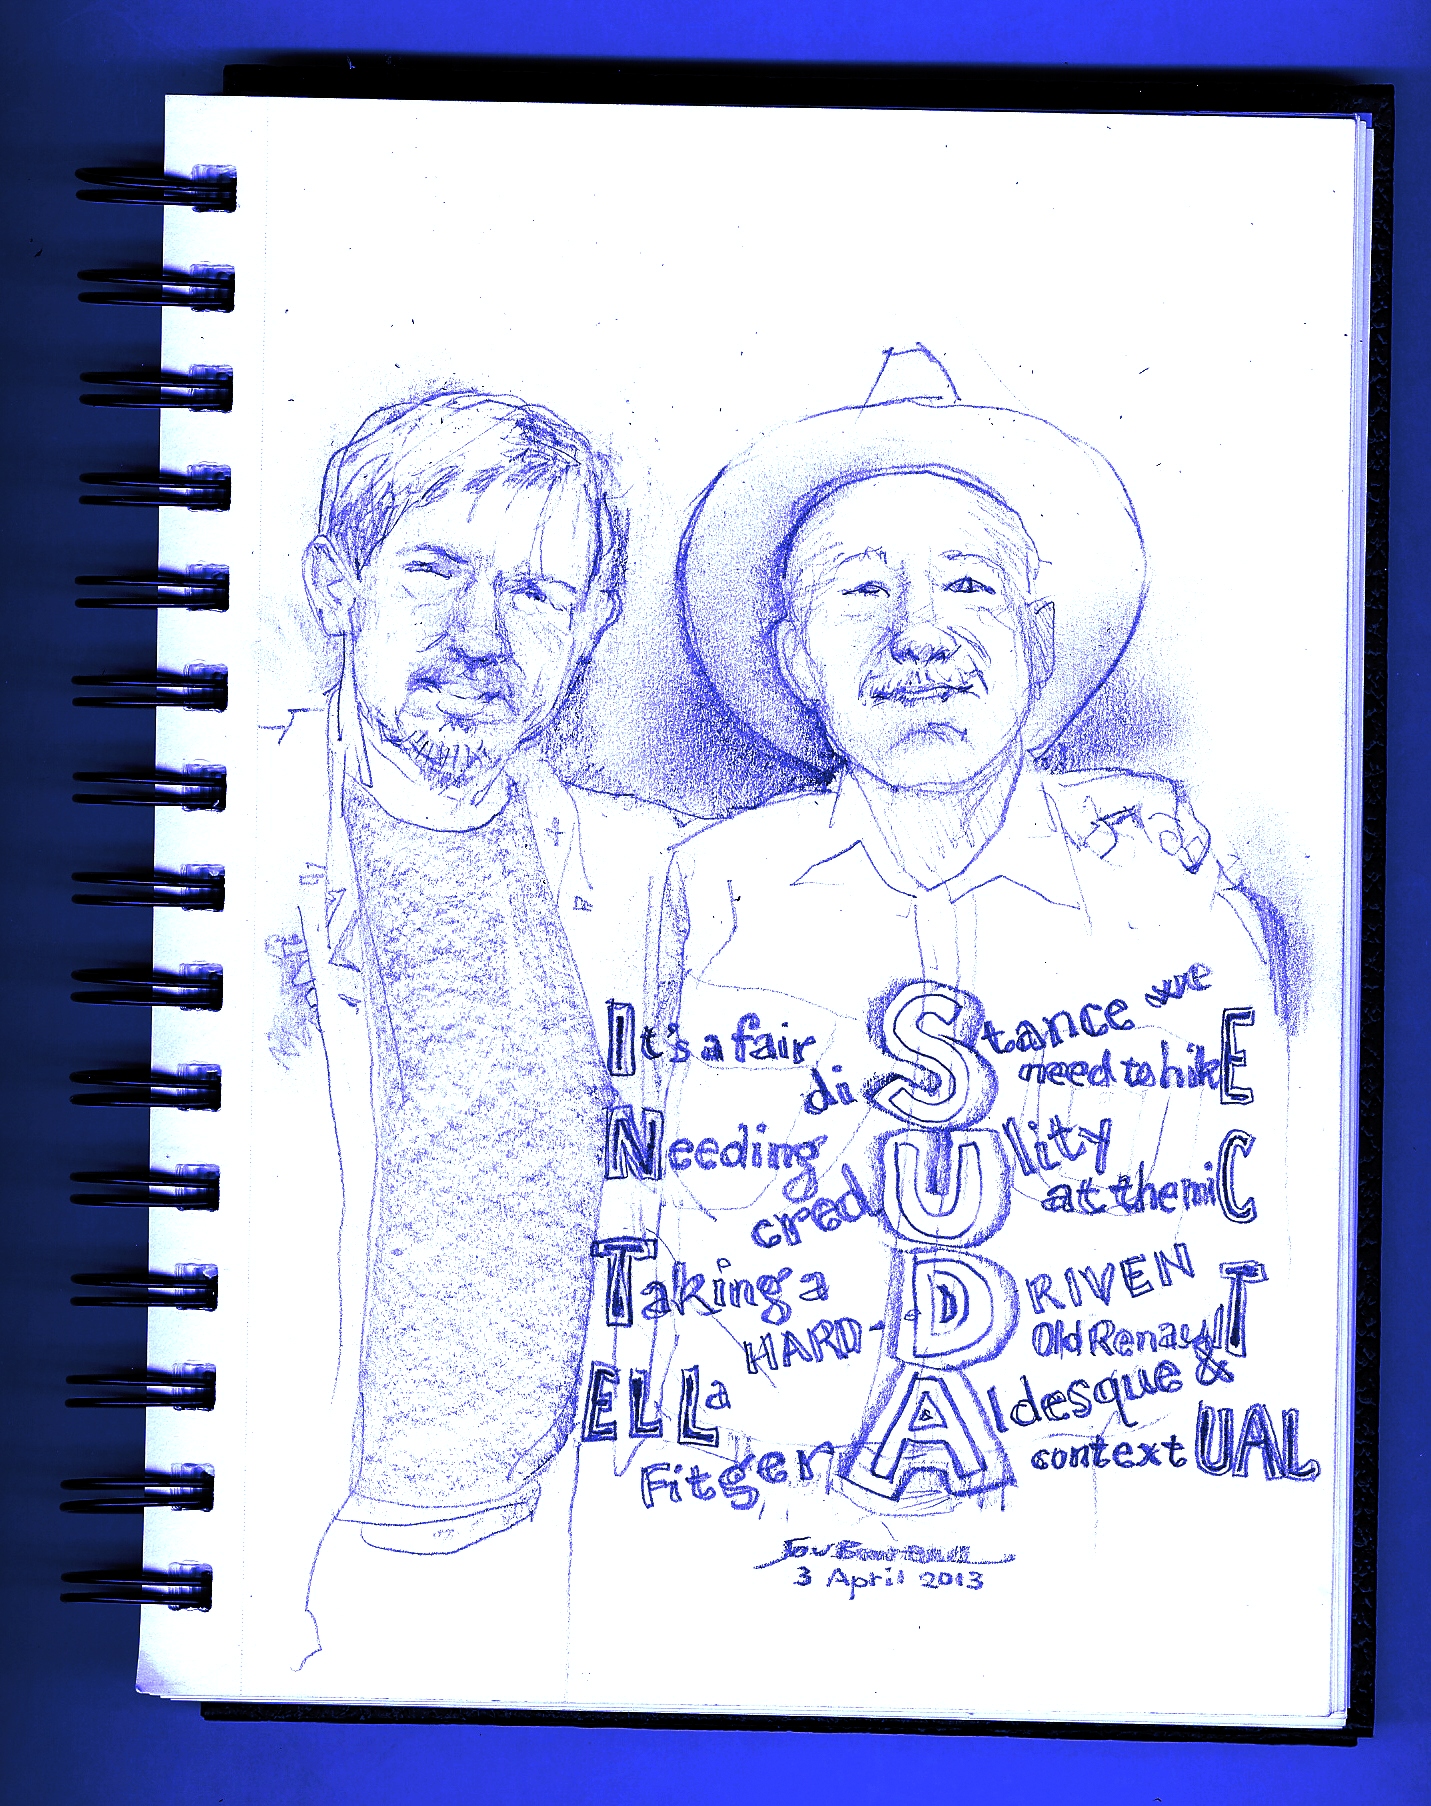 It's a fair diStance we
need to hikE
Needing credUlity
at the miC
Taking a HARD-DRIVEN
Old RenaulT
ELLa FitgerAldesque &
contextUAL
3 April 2013